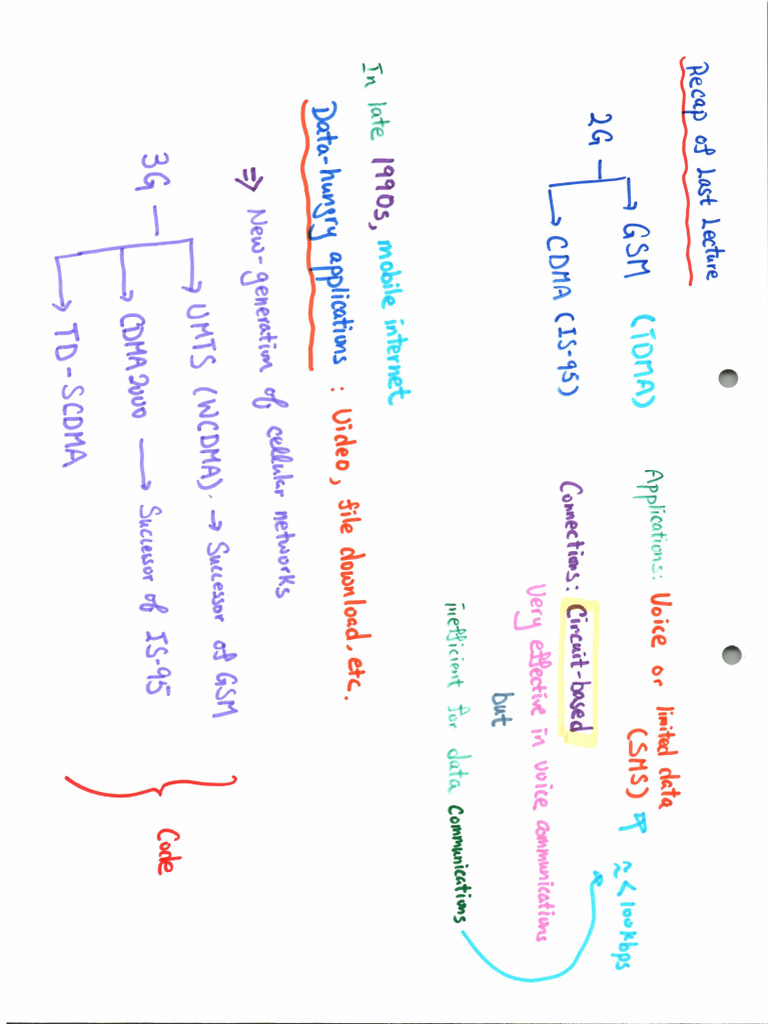 Recap of Last Lecture
2G
GSM (TDMA)
CDMA (IS-95)
Applications: Voice or limited data
(SMS)
≈<100kbps
Connections: Circuit-based
Very effective in voice communications
but
inefficient for data communications
In late 1990s, mobile internet
Data-hungry applications: Video, file download, etc.
⇒ New-generation of cellular networks
3G
UMTS (WCDMA). → Successor of GSM
CDMA2000 → Successor of IS-95
TD-SCDMA
Code